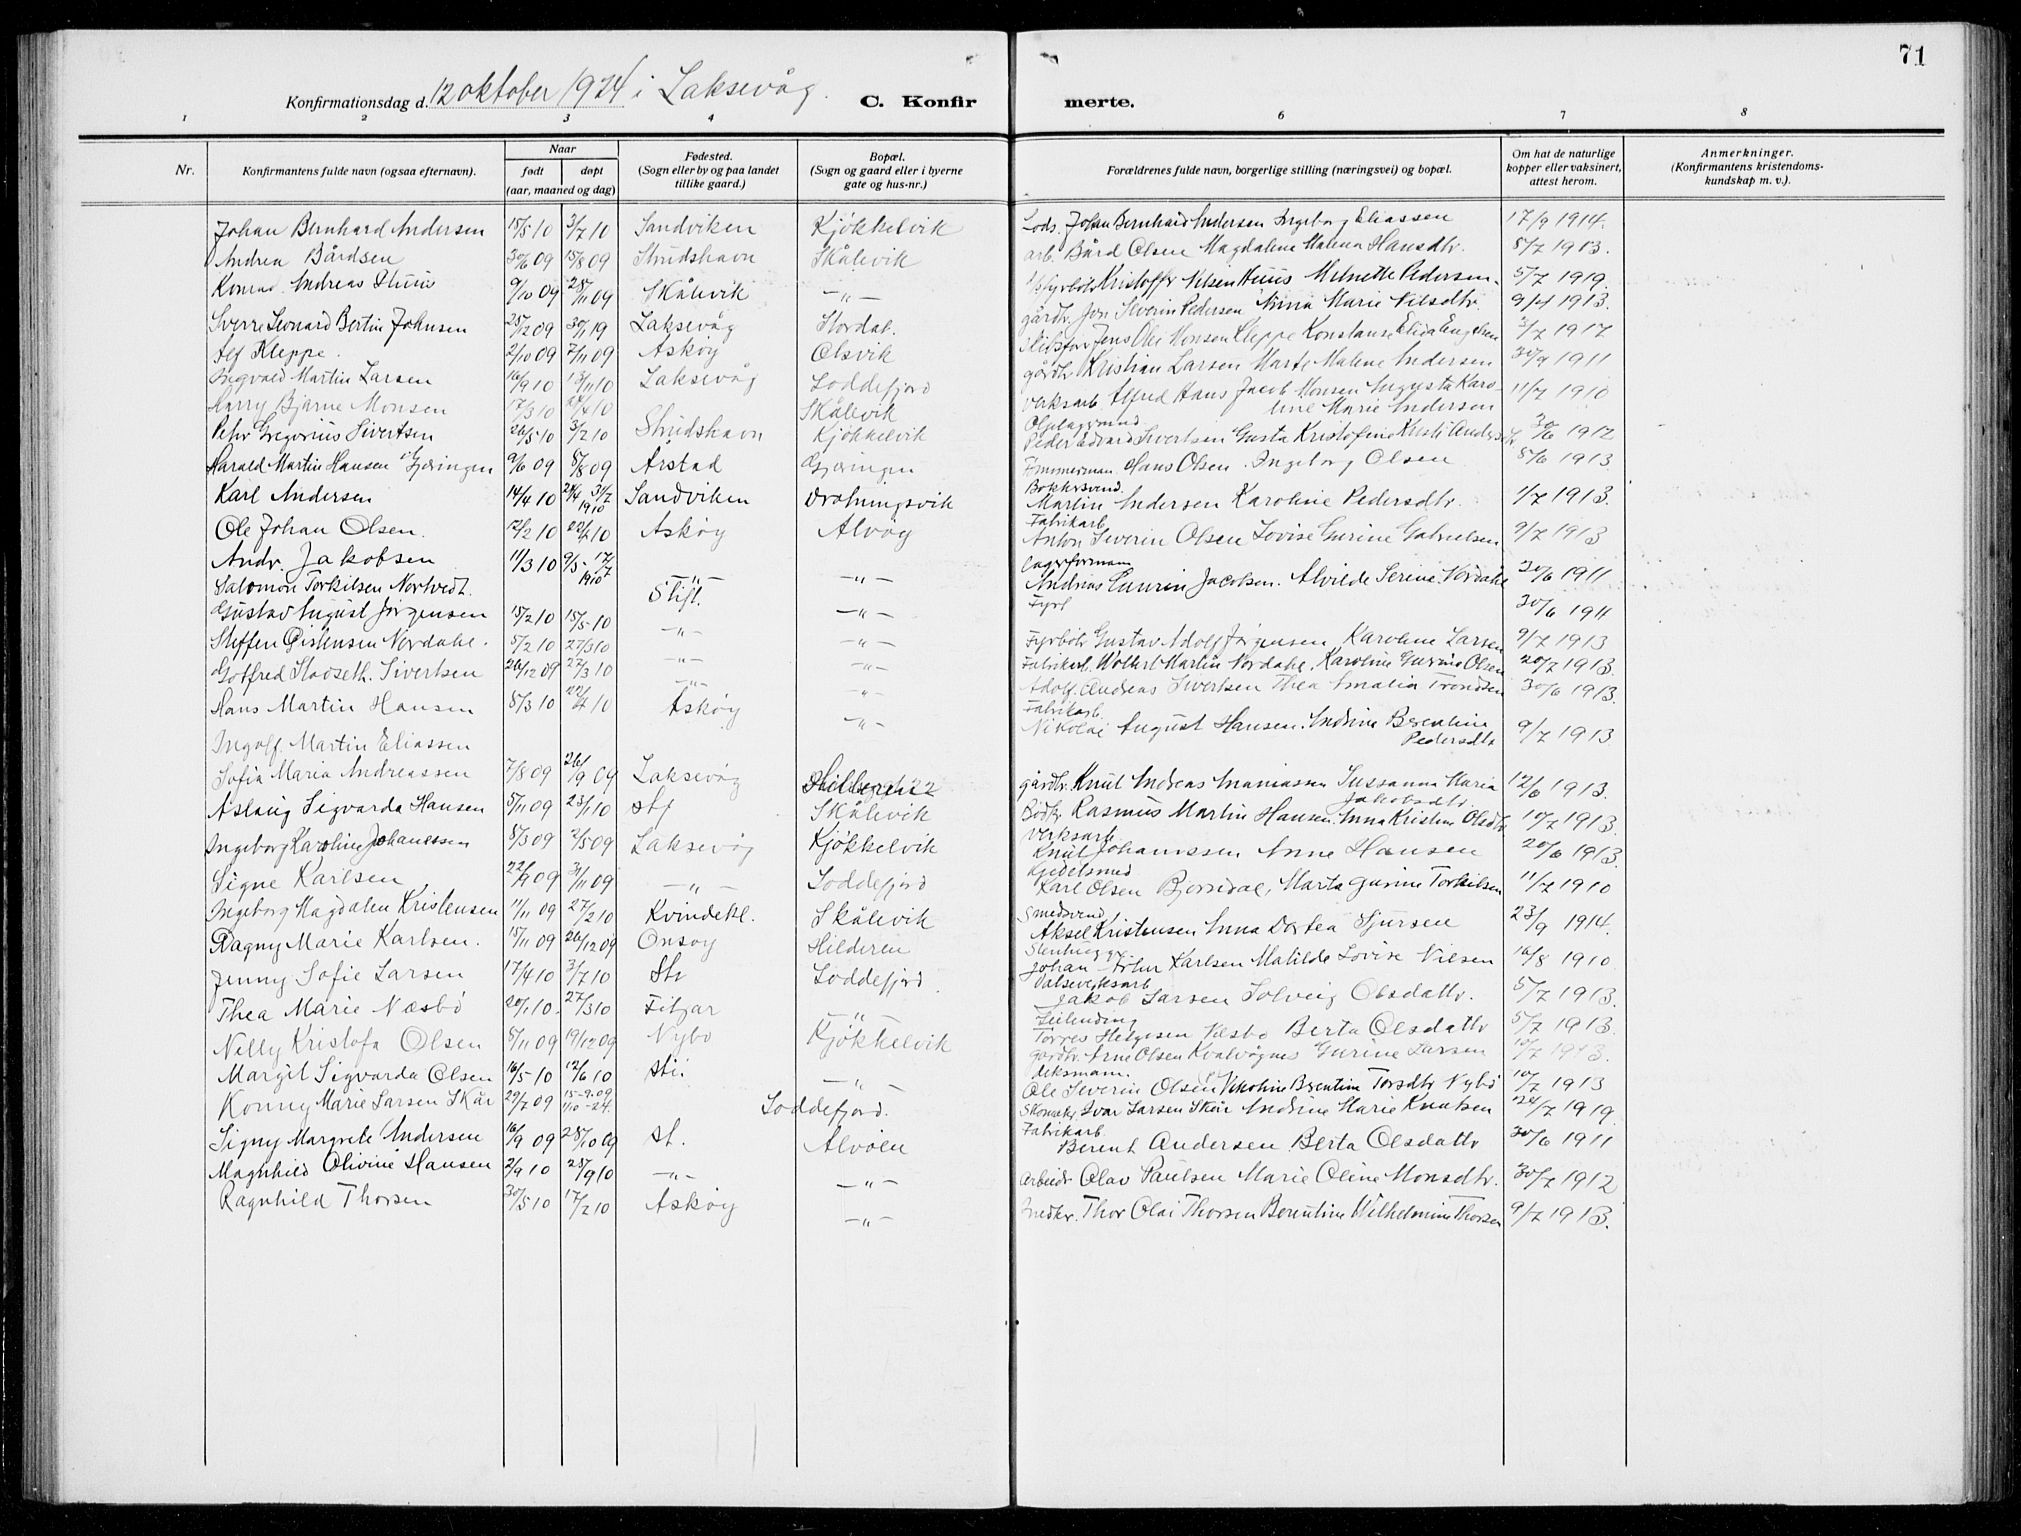 71
Konfirmationsdag d. 12 oktober 1924 i Laksevåg. C. Konfirmerte.
1 2 3 4 6 7 8
Nr. Konfirmantens fulde navn (ogsaa efternavn). Naar født døpt (aar, maaned og dag) Fødested. (Sogn eller by og paa landet tillike gaard.) Bopæl. (Sogn og gaard eller i byerne gate og hus-nr.) Forældrenes fulde navn, borgerlige stilling (næringsvei) og bopæl. Om hat de naturlige kopper eller vaksinert, attest herom. Anmerkninger. (Konfirmantens kristendoms-kundskap m. v.).
Johan Bernhard Andersen 15/5 10 3/7 10 Sandviken Kjøkkelvik Lods. Johan Bernhard Andersen Ingeborg Eliassen 17/9 1914.
Andrea Bårdsen 30/6 09 15/8 09 Strudshavn Skålevik arb. Bård Olsen Magdalene Malena Hansdtr. 8/7 1913.
Konrad Andreas Huus 9/10 09 28/11 09 Skålevik —„— Fyrbøtr Kristoffer Nilsen Huus Melnette Pedersen 5/7 1919.
Sverre Leonard Bertin Johnsen 25/12 09 Laksevåg Stordal. gårdbr. Jon Severin Pedersen Anna Marie Nilsdtr. 9/4 1913.
Alf Kleppe. 2/10 09 7/11 09 Askøy Olsvik Jens Ole Monsen Kleppe Konstanse Elida Engelsen 3/7 1917
Ingvald Martin Larsen 16/9 10 13/11 10 Laksevåg Loddefjord gårdbr Kristian Larsen Marte Malene Andersen 30/9 1911
Harry Bjarne Monsen 17/3 10 24/4 10 Skålevik Verksarb. Alfred Hans Jacob Monsen Augusta Karoline Marie Andersen 11/7 1910
Peder Gregorius Sivertsen 26/5 10 3/7 10 Strudshavn Kjøkkelvik Peder Edvard Sivertsen Gusta Kristofine 30/6 1912
Harald Martin Hansen Gjæringen 9/6 09 8/8 09 Årstad Gjæringen Tømmerman. Hans Olsen. Ingeborg Olsen 8/6 1913
Karl Andersen 14/4 10 24/4 31/7 1910 Sandviken Drotningsvik Bøkkersvend. Martin Andersen Karoline Pedersdtr. 1/7 1913.
Ole Johan Olsen. 12/2 10 22/5 10 Askøy Alvøy Fabrikarb. Anton Severin Olsen Lovise Gurine Gabrielsen 9/7 1913
Andr. Jakobsen 11/3 10 9/5 - 17/7 1910 —„— —„— Lagerformann Andreas Laurin Jacobsen. Alvilde Serine Nordahl 30/6 1911
Salomon Torkilsen Nortvedt. Stift. Fyrb 30/6 1911
Gustav August Jørgensen 15/2 10 15/5-10 —„— —„— Fyrbøtr Gustav Adolf Jørgensen Karoline Larsen 9/7 1913
Steffen Cistensen Nordahl. 5/2 10 27/3 10 —„— —„— Fabrikarb. Wollert Martin Nordahl. Karoline Gurine Olsen 20/7 1913.
Gotfred Stadseth. Sivertsen 26/12 09 27/3 10 —„— —„— Adolf. Andreas Sivertsen Thea Amalia Trondsen 30/6 1913.
Hans Martin Hansen 8/3 10 22/4 10 Askøy —„— Fabrikarb. Nikolai August Hansen. Andrine Berentine Pedersdtr 9/7 1913
Ingolf. Martin Eliassen —„—
Sofia Maria Andreassen 7/8 09 26/9 09 Laksevåg gårdbr. Knut Andreas Ananiassen Sussanna Maria Jakobsdtr. 12/6 1913.
Aslaug Sigvarda Hansen 5/11 09 23/1 10 St Skålevik Bødkr Rasmus Martin Hansen. Anna Kristine Olsdtr. 10/7 1913.
Ingeborg Karoline Johanessen 8/3 09 2/5 09 Laksevåg Kjøkkelvik Verksarb. Knut Johanessen Anne Hansen 20/6 1913.
Signe Karlsen 22/9 09 3/11 09 —„— Loddefjord Kjedelsmed Karl Olsen Bjorndal, Marta Gurine Torkilsen 11/7 1910
Ingeborg Magdalen Kristensen 11/11 09 27/2 10 Kvindehl. Skålevik Smedsvend Aksel Kristensen Anna Dortea Sjursen 23/9 1914.
Ragny Marie Karlsen. 15/11 09 26/12 09 Onsøy Hilderen Stenhugger Johan Artur Karlsen Matilde Lovise Nilsen 16/8 1910
Jenny Sofie Larsen 17/4 10 3/7 10 Str Loddefjord Valseverksarb Jakob Larsen Solveig Olsdattr. 5/7 1913.
Thea Marie Næsbø 20/1 10 27/3 10 Fitjar —„— Leilending Torres Helgesen Næsbø Berta Olsdattr 5/7 1913.
Nelly Kristofa Olsen 5/11 09 19/12 09 Nybø Kjøkkelvik gårdbr. Arne Olsen Kvalvågnes Gurine Larsen 10/7 1913.
Margit Sigvarda Olsen 16/5-10 12/6 10 Sti —„— Deksmann. Ole Severin Olsen Nikoline Brentine Torsdtr Nybø 10/7 1913
Konny Marie Larsen Skår 29/7 09 15-9-09 1/10-24. Loddefjord. Skomakr. Ivar Larsen Skår Andrine Marie Knutsen 24/7 1919.
Signy Margrete Andersen 16/9 09 28/10 09 St. Alvøen Fabrikarb. Berent Andersen Berta Olsdattr 30/6 1911
Magnhild Olivine Hansen 2/9 10 25/9 10 —„— —„— Arbeidr Olav Paulsen Marie Oline Monsdtr. 30/7 1912
Ragnhild Thorsen 30/5 10 17/7 10 Askøy —„— Snedkr. Thor Olai Thorsen Berentine Wilhelmine Thorsen 9/7 1913.